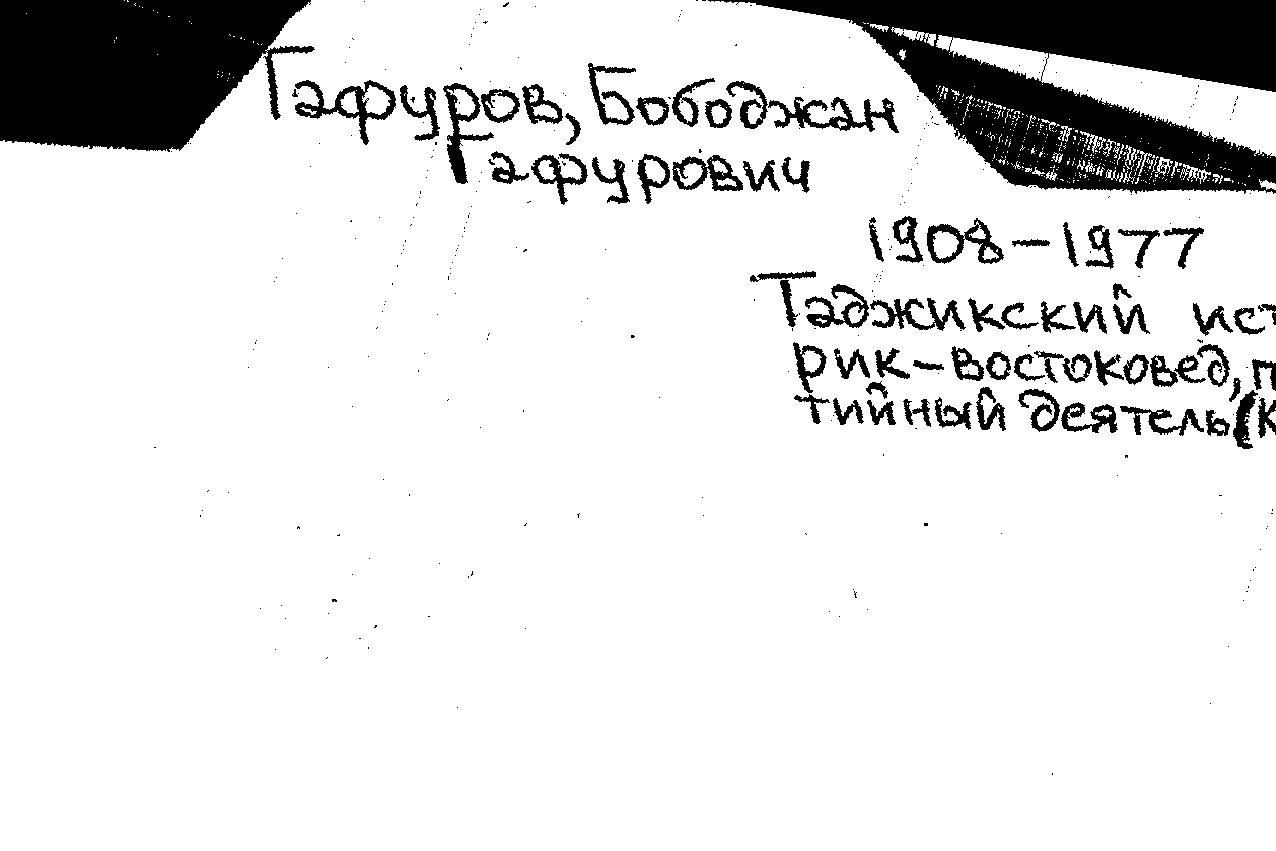 Гафуров, Бободжан
Гафурович
1908-1977
Таджикский ист
рик-востоковед, п
тийный деятель (К